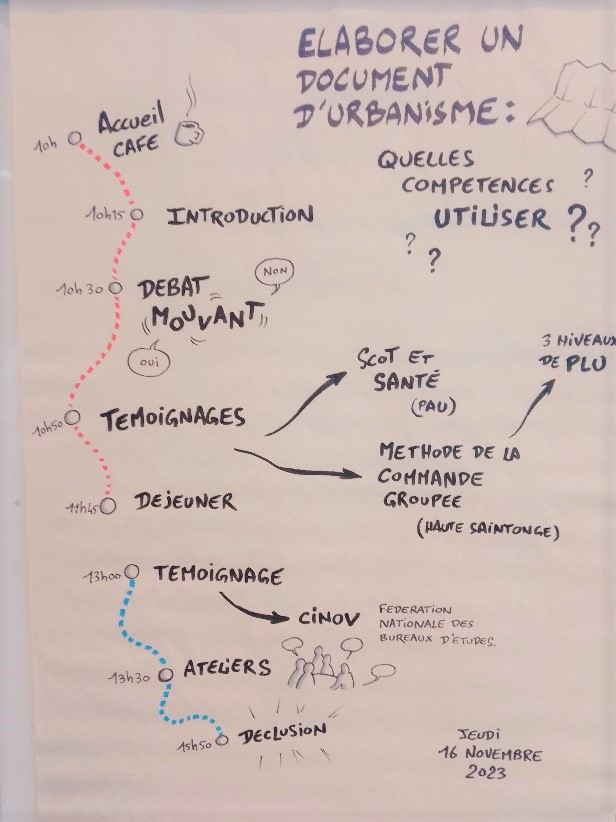 ELABORER UN
DOCUMENT
D'URBANISME :
QUELLES
COMPETENCES ?
UTILISER ??
? ?
10h Accueil
CAFE
10h15 INTRODUCTION
10h30 DEBAT
MOUVANT
NON
OUI
10h50 TEMOIGNAGES
SCOT ET
SANTÉ
(PAU)
METHODE DE LA
COMMANDE
GROUPEE
(HAUTE SAINTONGE)
3 NIVEAUX
DE PLU
11h45 DEJEUNER
13h00 TEMOIGNAGE
CINOV
FEDERATION
NATIONALE DES
BUREAUX D'ETUDES.
13h30 ATELIERS
15h50 DECLUSION
JEUDI
16 NOVEMBRE
2023